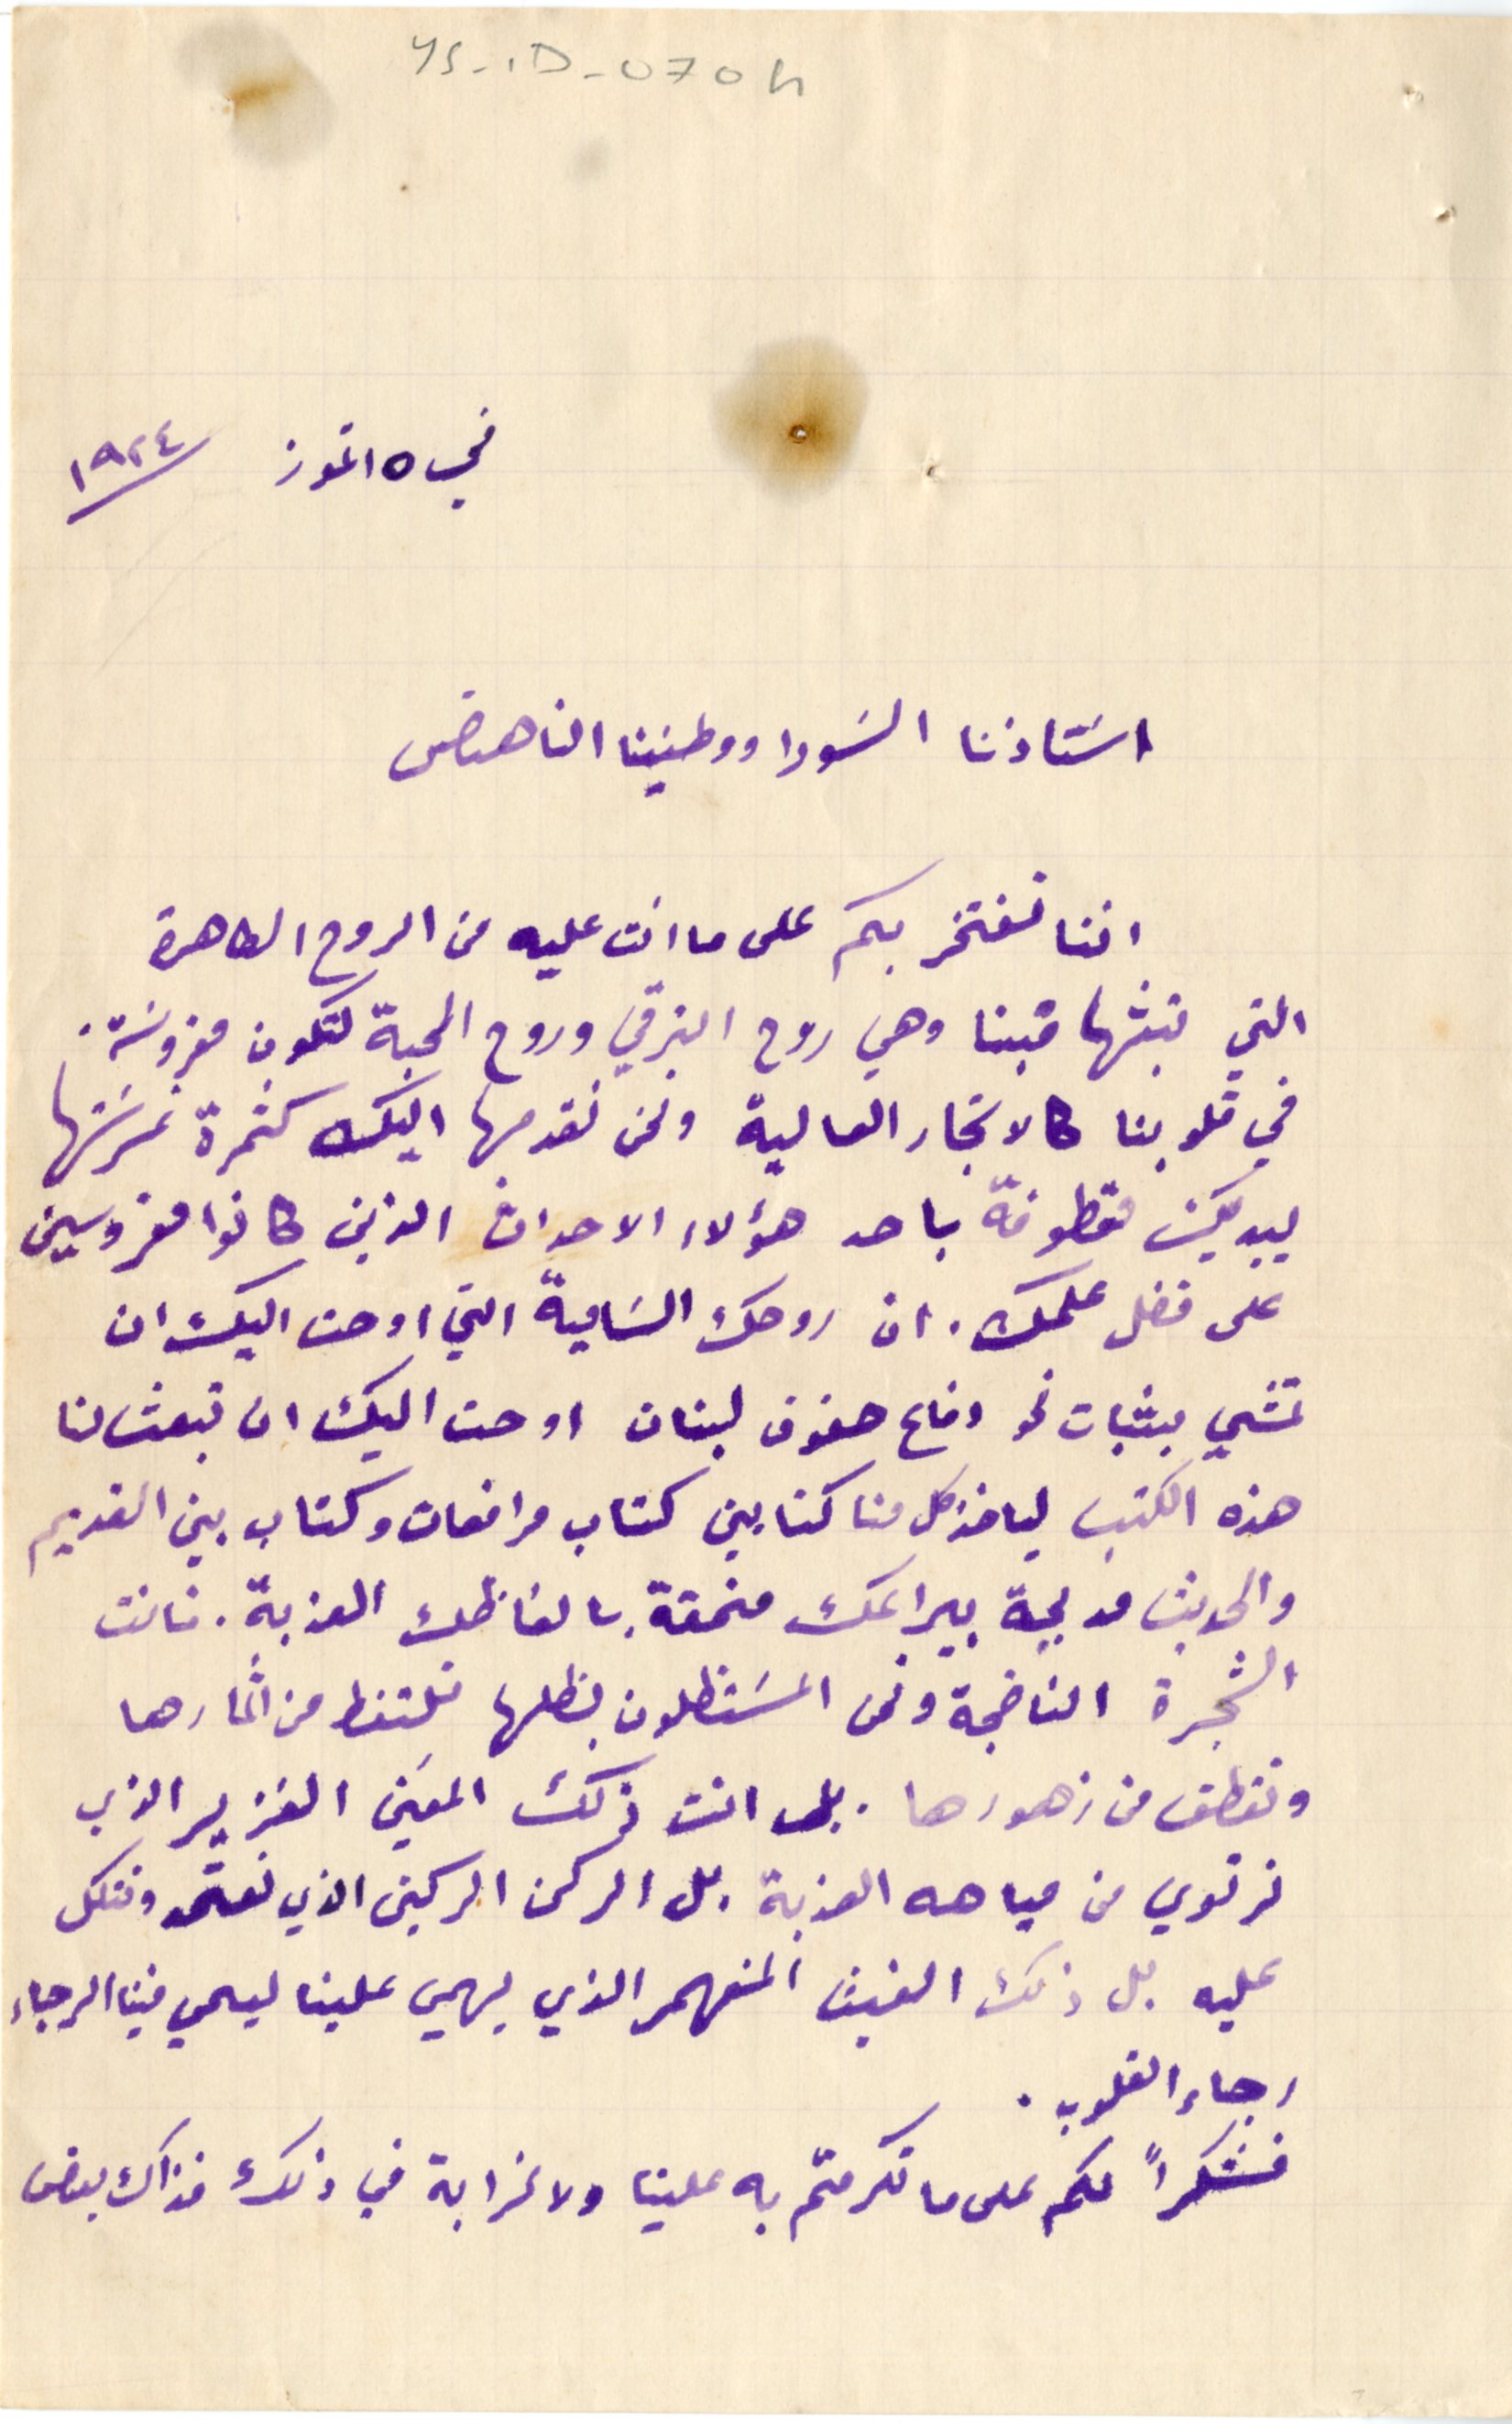 YS-1D-0704
في ١٥ تموز ١٩٢٤
استاذنا السودا ووطنينا الناهض
اننا نفتخر بكم على ما انت عليه من الروح الطاهرة
التي تبثها قبنا وهي روح الترقي وروح المحبة لتكون مغروسة
في قلوبنا كالاشجار العالية ونحن نقدمها اليك كثمرة غرستها
بيديك مقطوفة باحد هؤلاء الاحداث الذين كانوا مغروسين
على فضل علمك. ان روحك السامية التي اوحت اليك ان
تمشي بثبات نحو دفاع حقوق لبنان اوحت اليك ان تبعث لنا
هذه الكتب لياخذ كل منا كتابين كتاب مرافعات وكتاب بين القديم
والحديث مدبجة بيراعك منمقة بالفاظك العذبة. فانت
الشجرة الناضجة ونحن المستظلون بظلها نلتقط من اثمارها
ونقطف من زهورها. بل انت ذلك المعين الغزير الذي
نرتوي من مياهه العذبة. بل الركن الركين الذي نعتمد ونتكل
عليه بل ذلك الغيث المنهمر الذي يهمي علينا ليحي فينا الرجاء
رجاء القلوب.
فشكراً لكم على ما تكرمتم به علينا ولا غرابة في ذلك فذاك بعض